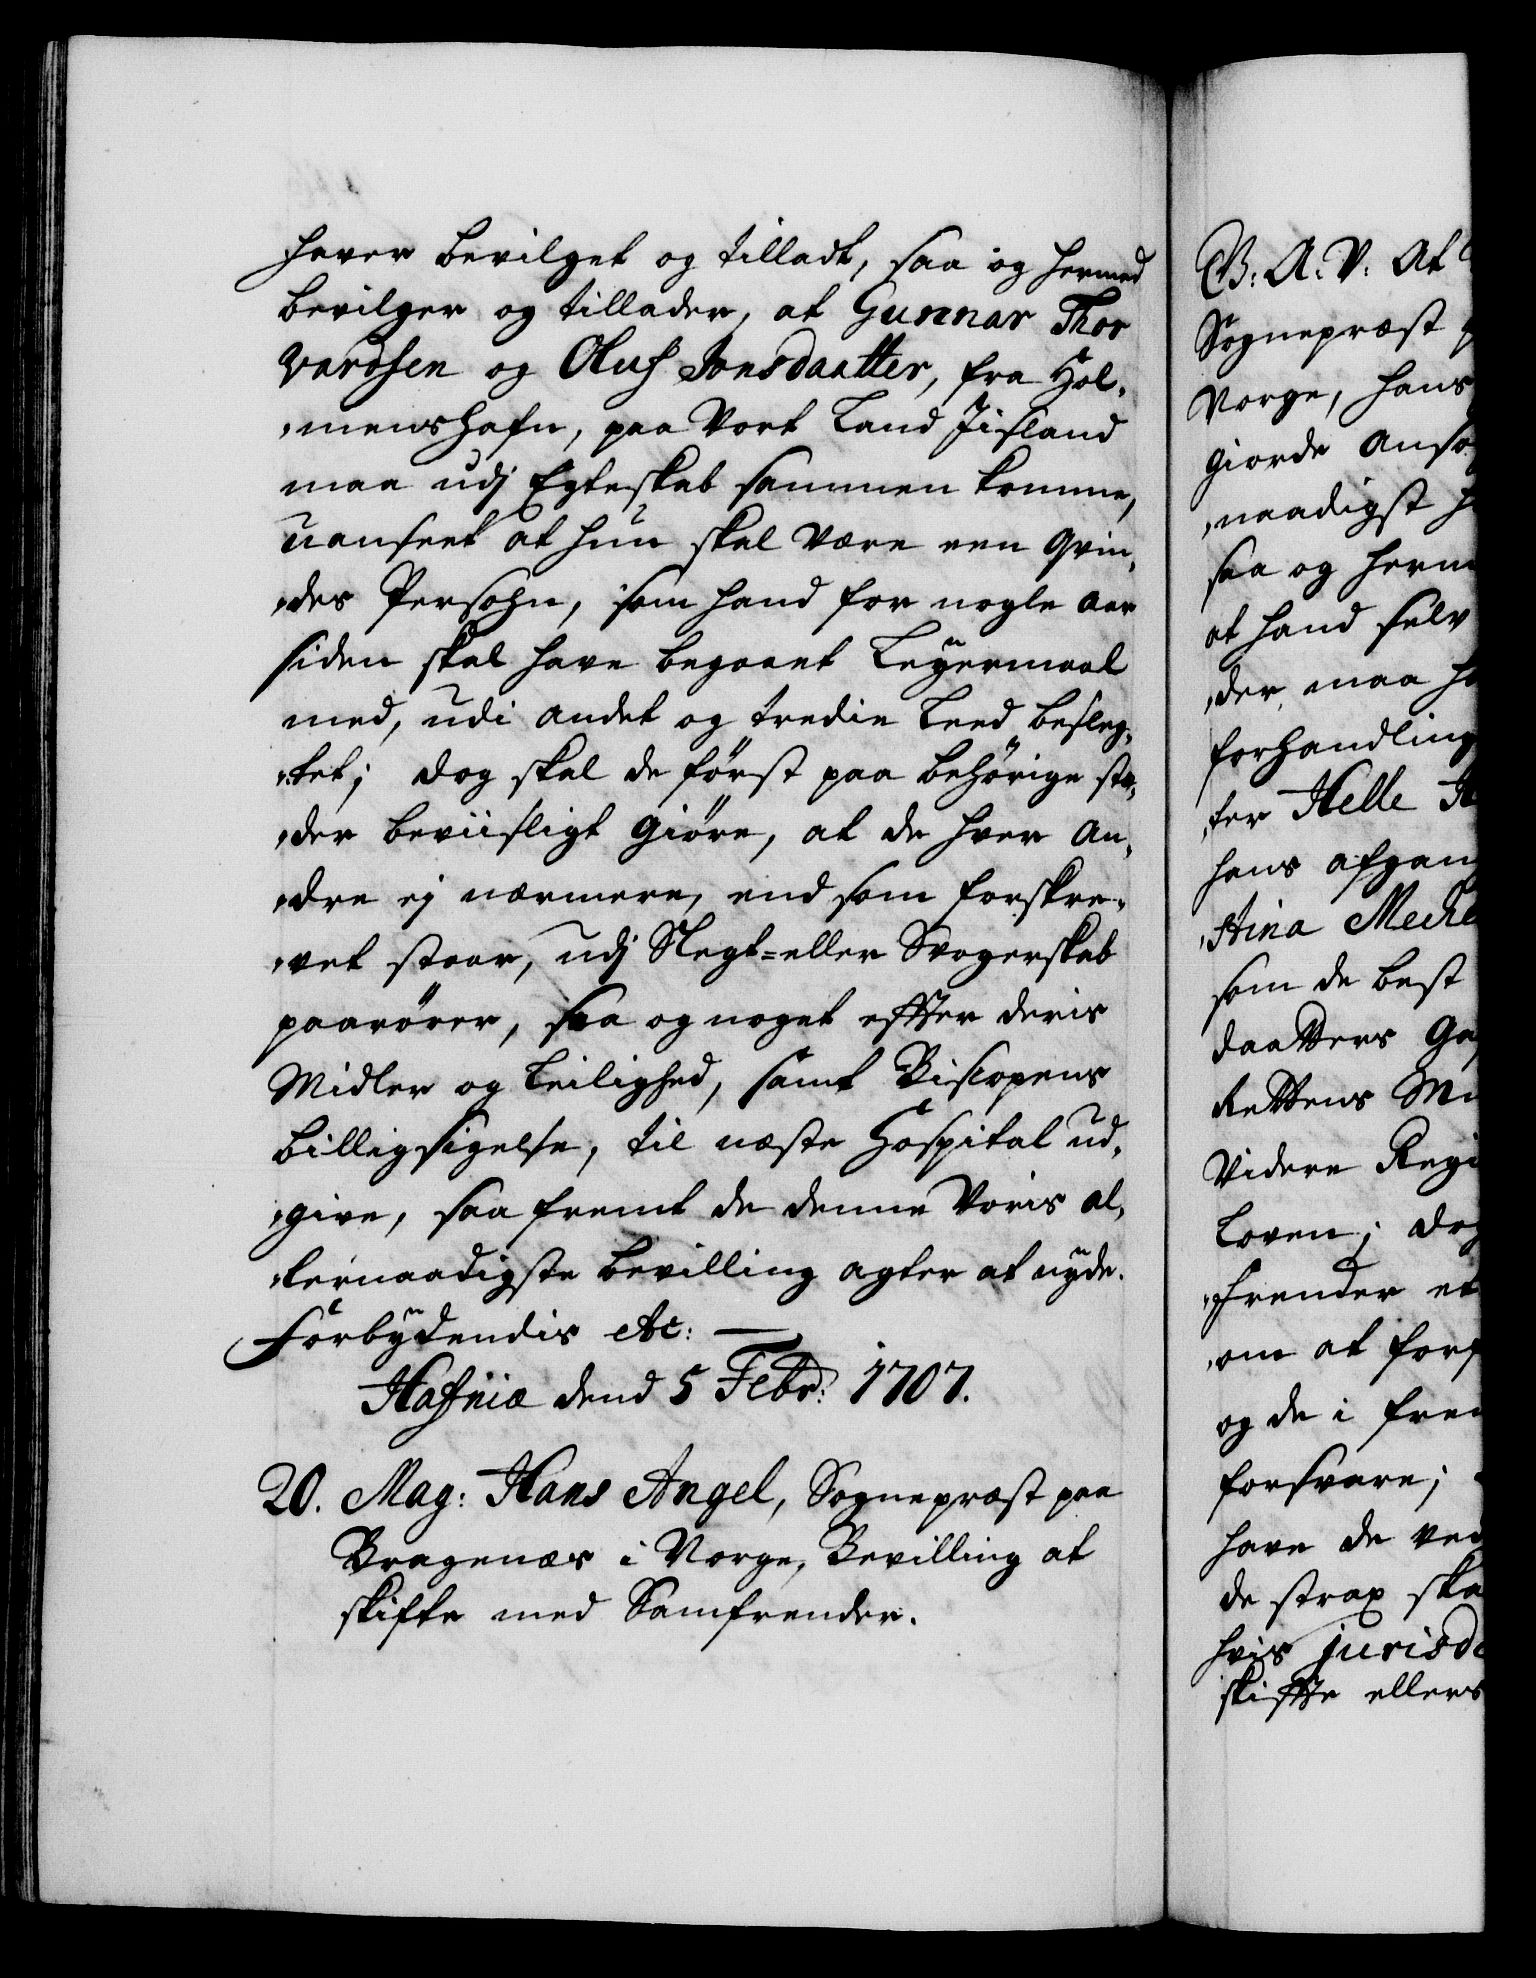 hafver bevilget og tilladt, saa og hermed
bevilger og tillader, at Gunnar Thor
vardsen og Oluf Jonsdaatter, fra Hol,
,menshafn, paa Vort Land Jisland
maa udj Egteskab sammen komme,
uanseet at hun skal være een Qvin,
,des Persohn, som hand for nogle aar
siden skal have begaaet Leyermaal
med, udi andet og tredie Leed besleg,
,tet; dog skal de först paa behörige stæ,
,der beviisligt giöre, at de hver an,
,dre ej nærmere, end som forskre,
,vet staar, udj Slegt=eller Svogerskab
paarörer, saa og noget effter deris
Midler og Leilighed, samt Biscopens
billigsigelse, til næste Hospital ud,
,give, saafremt de denne Voris al,
,lernaadigste bevilling agter at nyde.
Forbydendis etc: —
Hafniæ dend 5 Febr: 1707.
20. Mag: Hans Angel, Sognepræst paa
Bragenæs i Norge, Bevilling at
skifte med Samfrender.
G. A. V. At
Sognepræst
Norge, hans
giorde ansø
,naadigst
saa og herm
at hand selv
,der, maa
forhandling
,ter Helle
hans afgan
,stina
som de best
daatters
Rettens
Videre Regi
Loven; dog
,frender et
,om at forf
og de i frem
forsvare;
have de ved
de strax ska
hvis jurisd
skiffte ellers